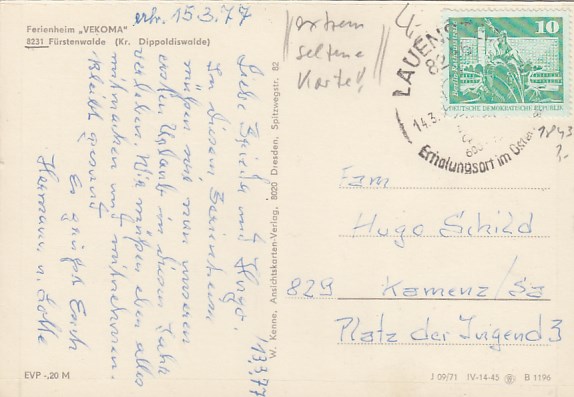 erh. 15.3.77
Ferienheim „VEKOMA"
8231 Fürstenwalde (Kr. Dippoldiswalde)
extrem
seltene
Karte!
LAUENST
14.3.
Erholungsort im Oster
10
DEUTSCHE DEMOKRATISCHE REPUBLIK
1843
13.3.77
Liebe Frieda und Hugo!
In diesem Ferienheim
müßen wir nun unseren
ersten Urlaub in diesem Jahr
verleben. Wir müßen eben alles
mitmachen und mitnehmen.
Bleibt gesund
Es grüßt Euch
Hermann u. Lotte
W. Kenne, Ansichtskarten-Verlag, 8020 Dresden, Spitzwegstr. 82
Fam
Hugo Schild
829 Kamenz/Sa
Platz der Jugend 3
EVP -,20 M
J 09/71 IV-14-45 B 1196